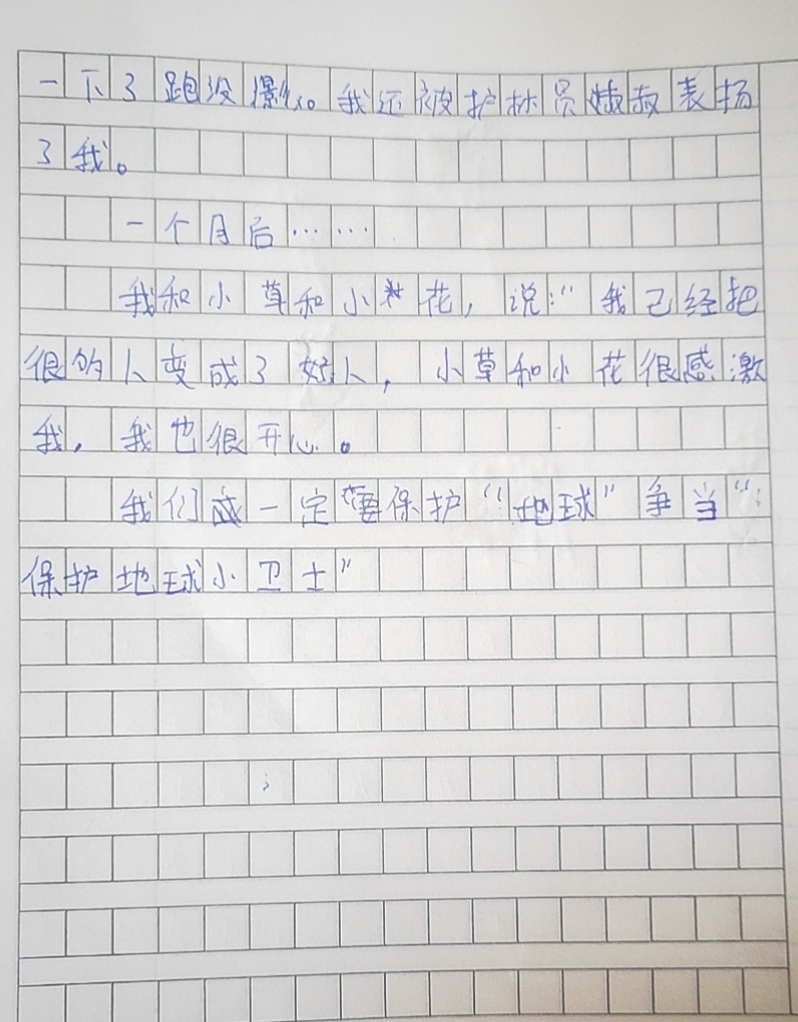 一下了跑没影了。我还被护林员叔叔表扬
了我。
一个月后……
我和小草和小花,说:“我已经把
很的人变成了好人,小草和小花很感激
我,我也很开心。
我们一定要保护“地球”争当“
保护地球小卫士”